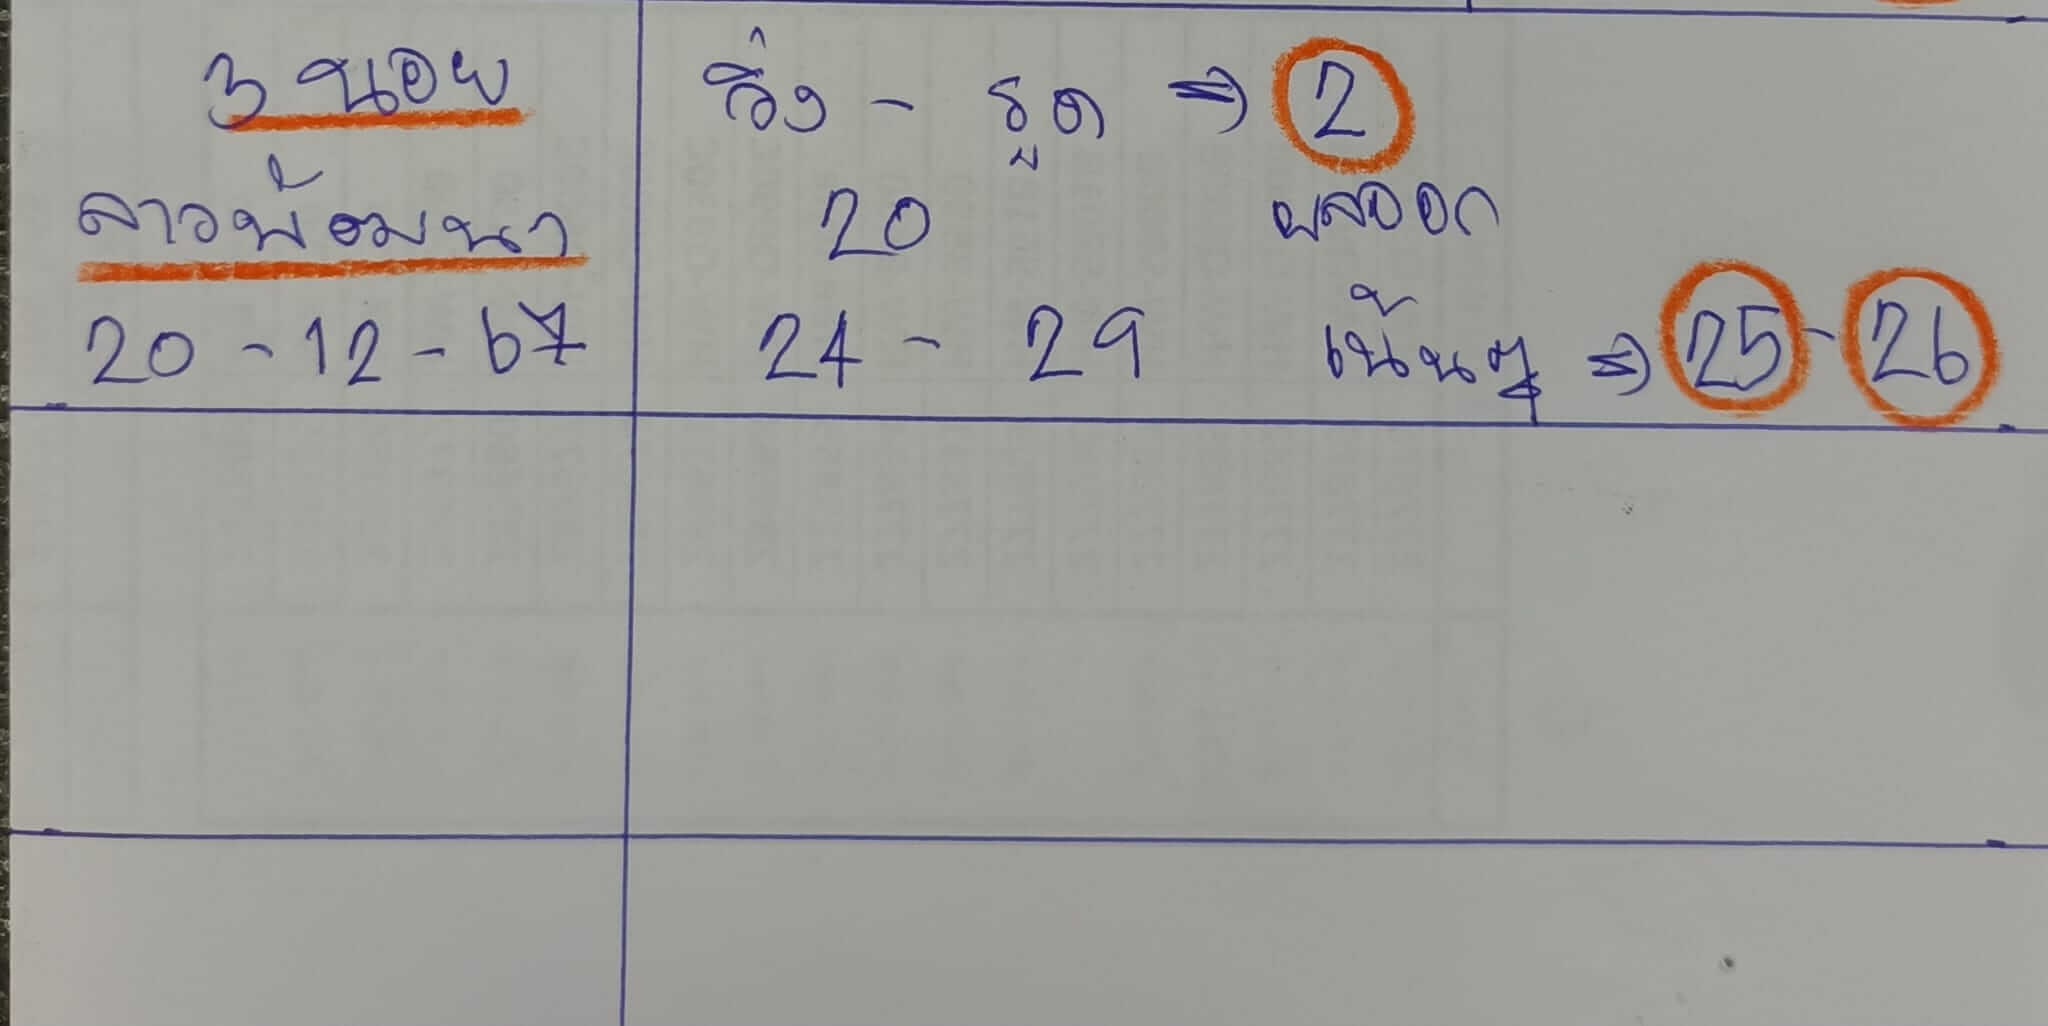 3 นอย
ลาวพัฒนา
20 - 12 - 67
วิ่ง - รูด ⇒ 2
20 ผลออก
24 - 29 เน้นๆ ⇒ 25 - 26